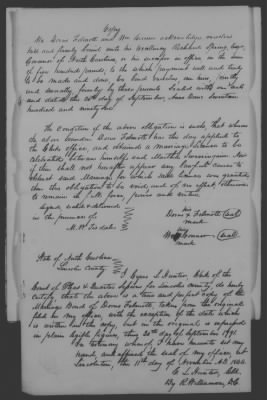 Copy
We Boris Falwott and Wm Conner acknowledge ourselves
held and firmly bound unto his Excellency Richard Spring, esqr.
Governor of North Carolina, or his successor in office, in the sum
of five hundred pounds, to the which payment well and truly
to be made and done, we bind ourselves, our heirs, jointly
and severally firmly by these presents. Sealed with our seals
and dated the 20th day of September, Anno Domini Seventeen
hundred and ninety one.
The condition of the above obligation is such, that where
the above bounden Boris Falwott has this day applied to
the Clerk's office, and obtained a marriage license to be
celebrated between himself and Martha Now
if there shall not hereafter appear any lawful cause to
obstruct said Marriage for which said license was granted
then this obligation to be void, and of no effect, otherwise
to remain in full force, power and virtue.
Signed, sealed & delivered
in the presence of
his
Boris X Falwott (seal)
mark
M. W. Tisdale
his
Wm X Connor (seal)
mark
State of North Carolina
Lincoln County
I, Cyrus L. Hunter, Clerk of the
Court of Pleas & Quarter Sessions for Lincoln County, do hereby
certify that the above is a true and perfect copy of the
Marriage Bond of Boris Falwott, taken from the original
filed in my office, with the exception of the date which
is written in the copy, but in the original is expressed
in plain legible figures, thus 20th day of September 1791.
In testimony whereof, I have hereunto set my
hand, and affixed the seal of my office, at
Lincolnton, this 11th day of November A.D. 1844
C. L. Hunter, Clk.
By R. Williamson, D.C.